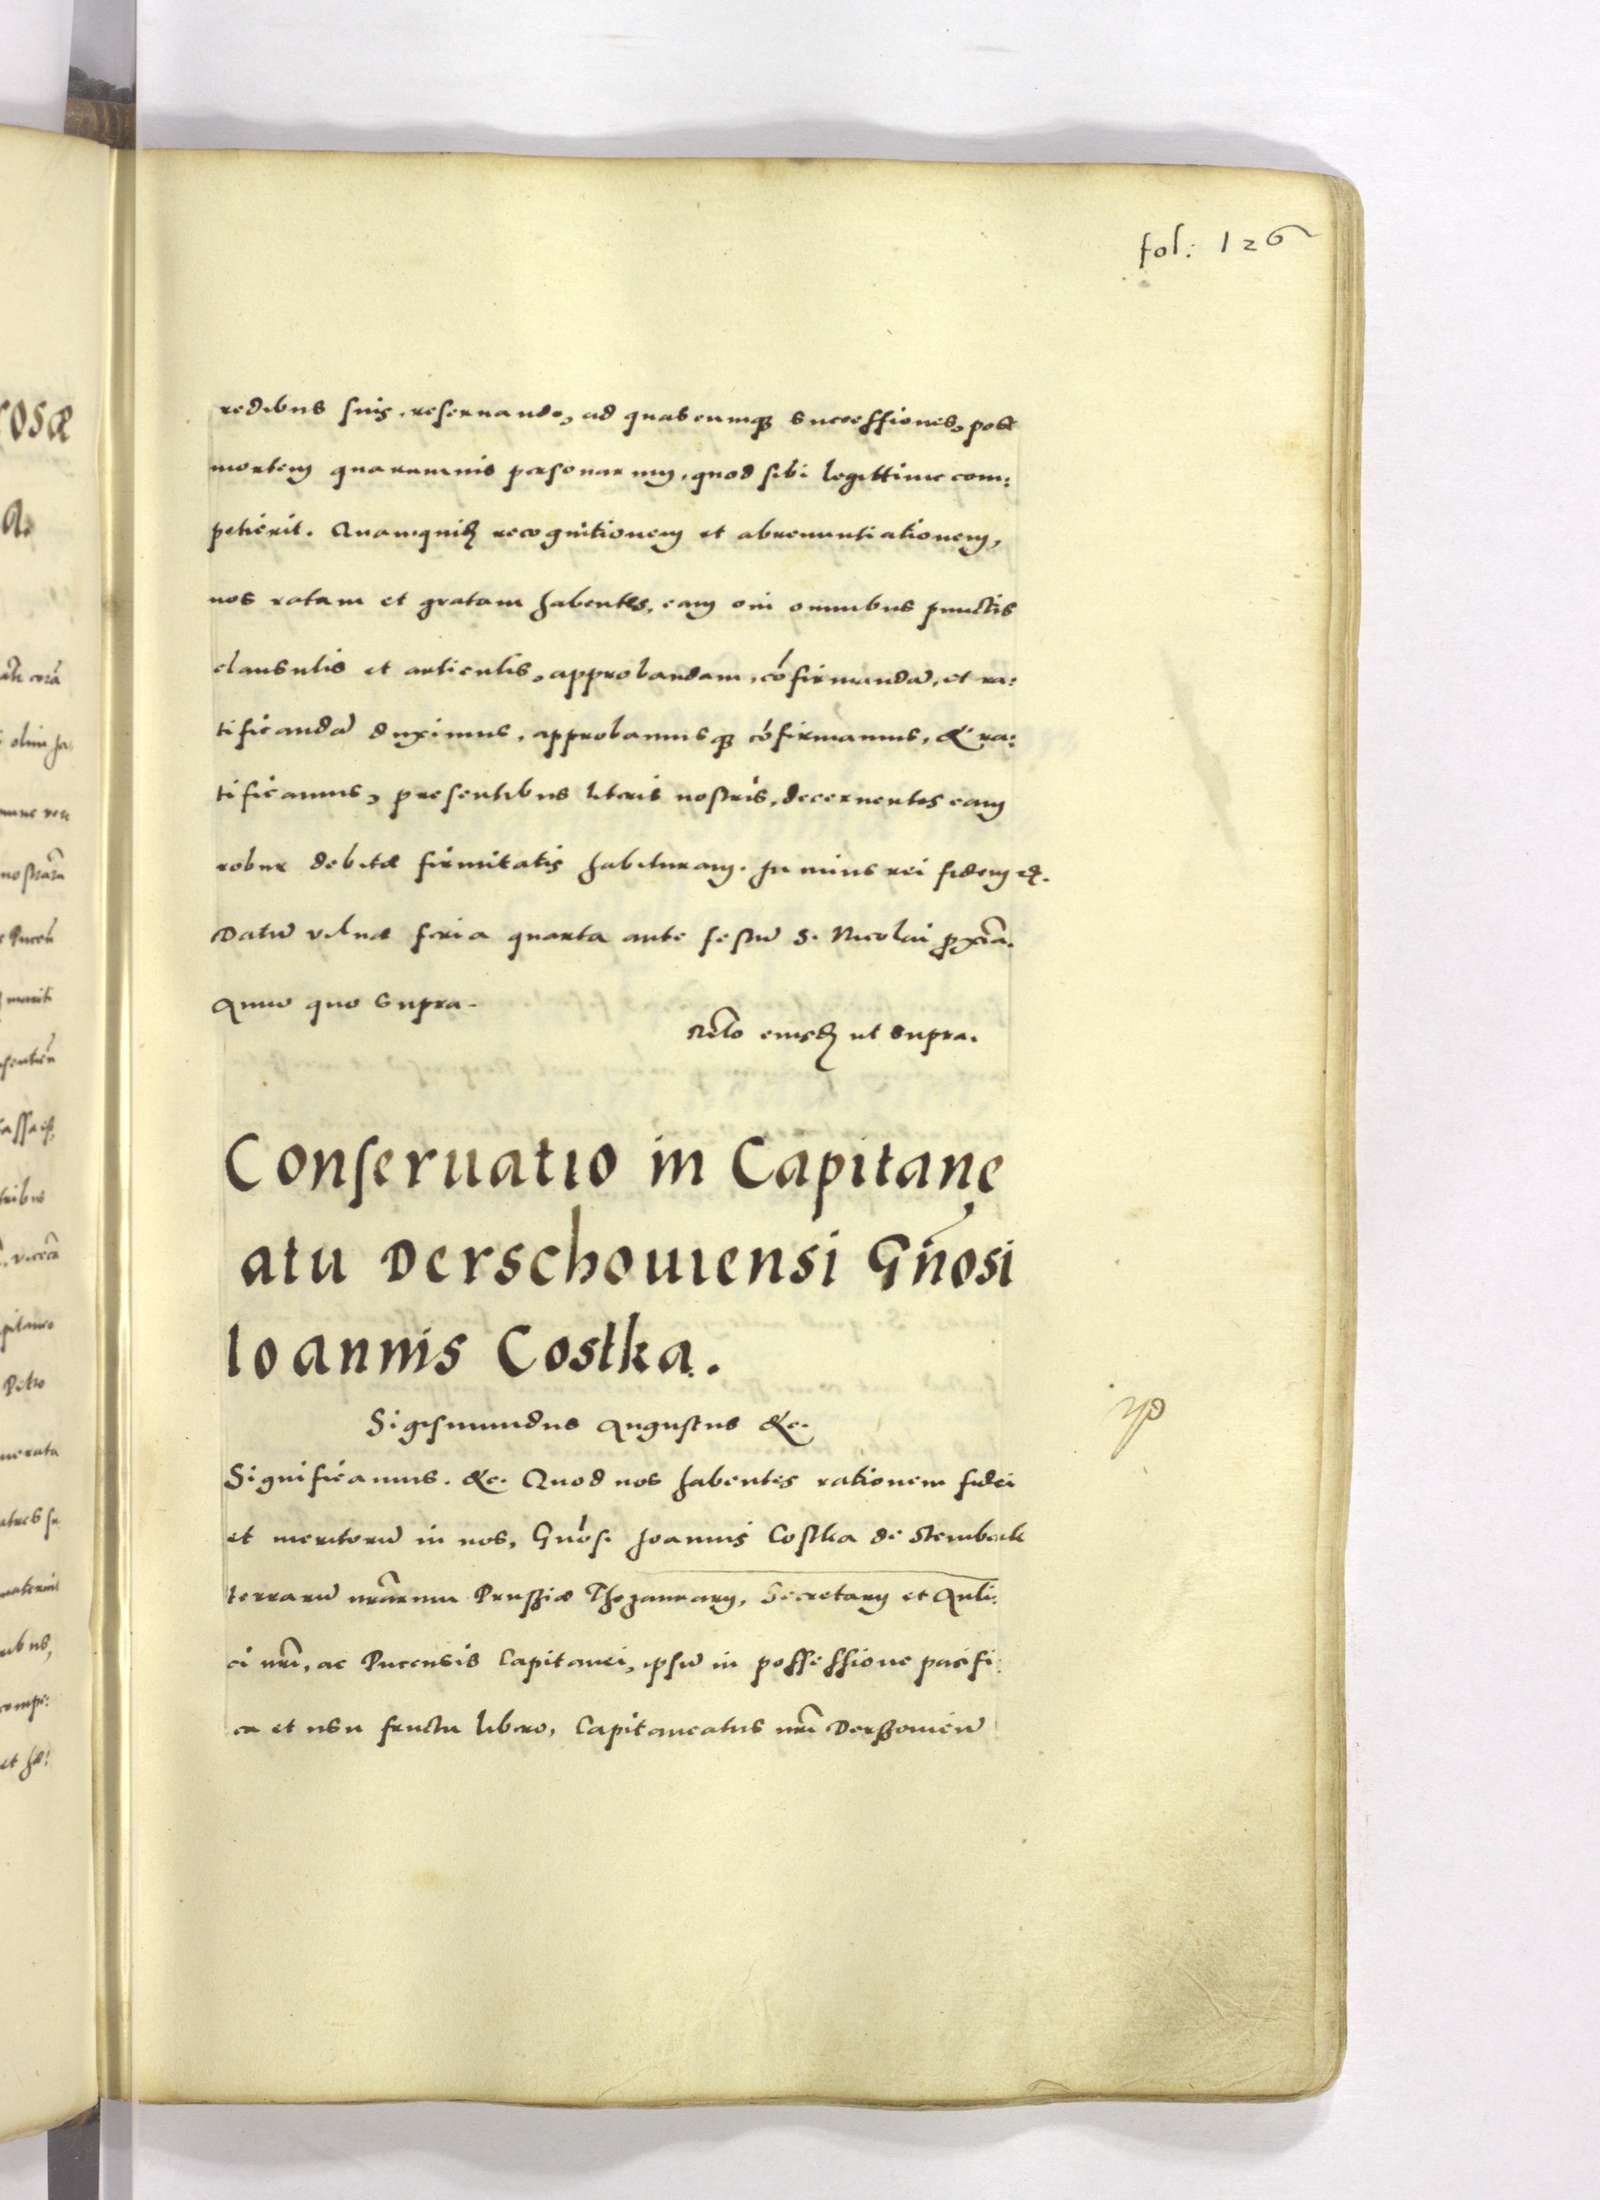 fol: 126
redibus suis reseruando, ad quascumque successiones, post
mortem quarumuis personarum, quod sibi legittime com:
petierit. Quamquidem recognitionem et abrenuntiationem,
nos ratam et gratam habentes, eam in omnibus punctis
clausulis et articulis, approbandam, cōfirmandā, et ra:
tificandā duximus, approbamusque cōfirmamus, & ra:
tificamus, presentibus literis nostris, decernentes eam
robur debitæ firmitatis habituram. In cuius rei fidem etc.
Datū Vilnæ feria quarta ante festū S. Nicolai proximā.
Anno quo supra.
Relō eiusdem ut supra.
Conseruatio in Capitane
atu Derschouiensi Gñosi
Ioannis Costka.
Sigismundus Augustus &c.
Significamus. &c. Quod nos habentes rationem fidei
et meritorū in nos, Gños. Joannis Costka de Stembark
terrarū nr̄arum Prussiæ Thezaurary, Secretary et Auli:
ci nr̄i, ac Pucensis Capitanei, ipsū in possessione pacifi:
ca et usu fructu libero, Capitaneatus nr̄i Derssouieñ